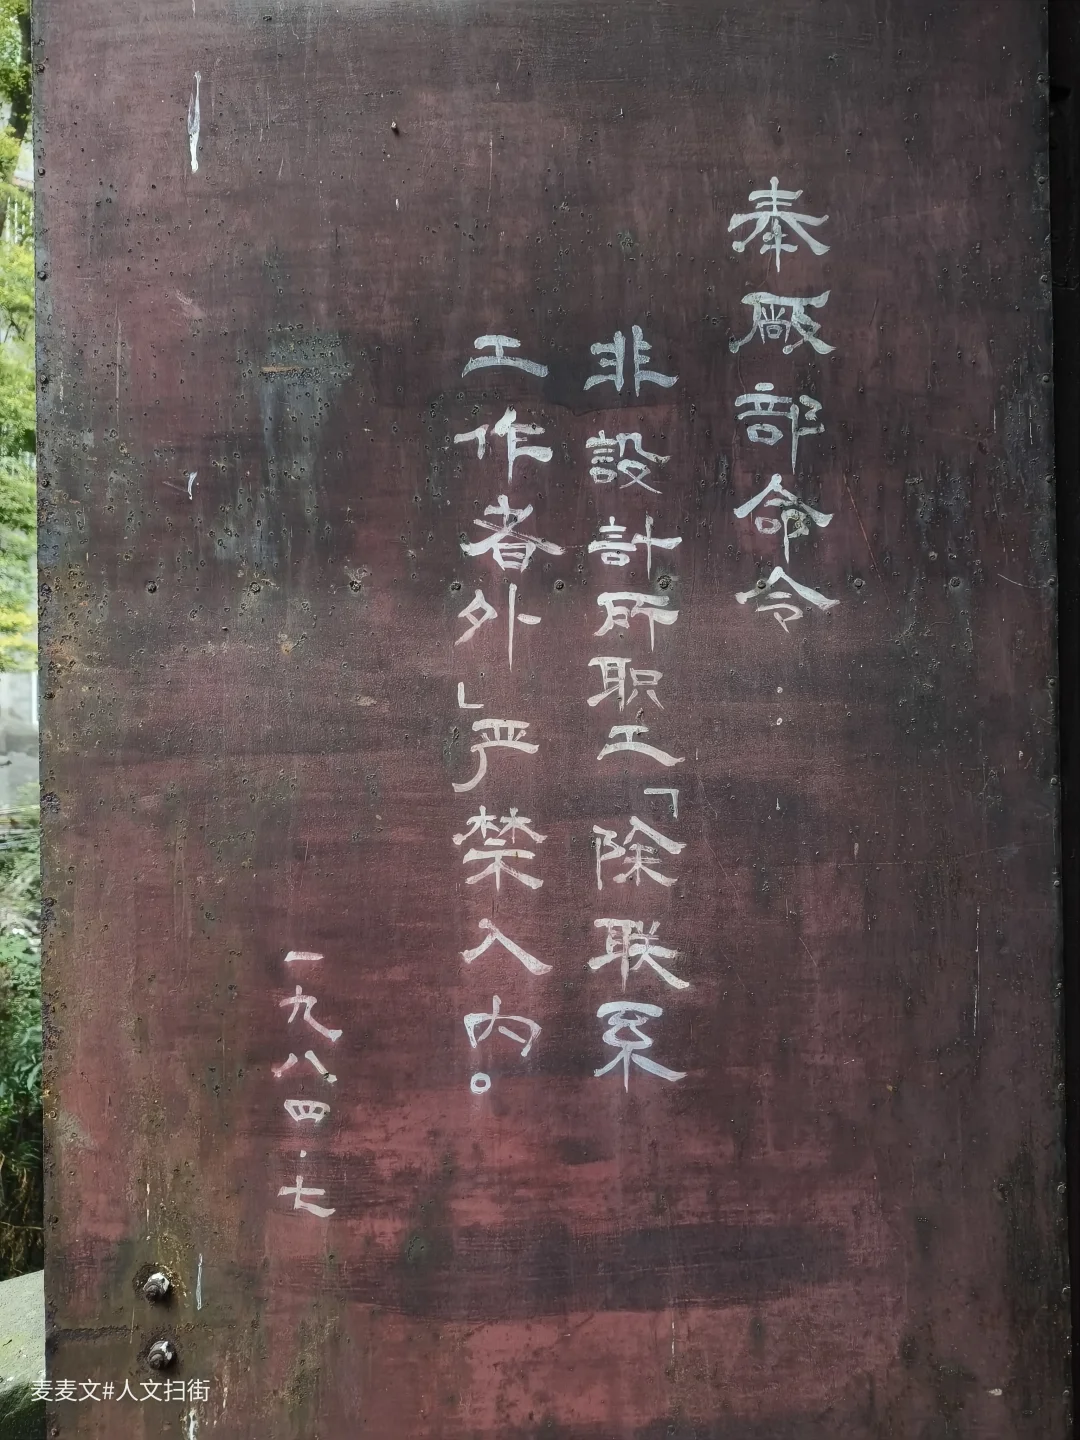 奉厰部命令:
非設計所职工「除联系
工作者外」严禁入内。
一九八四·七
麦麦文#人文扫街